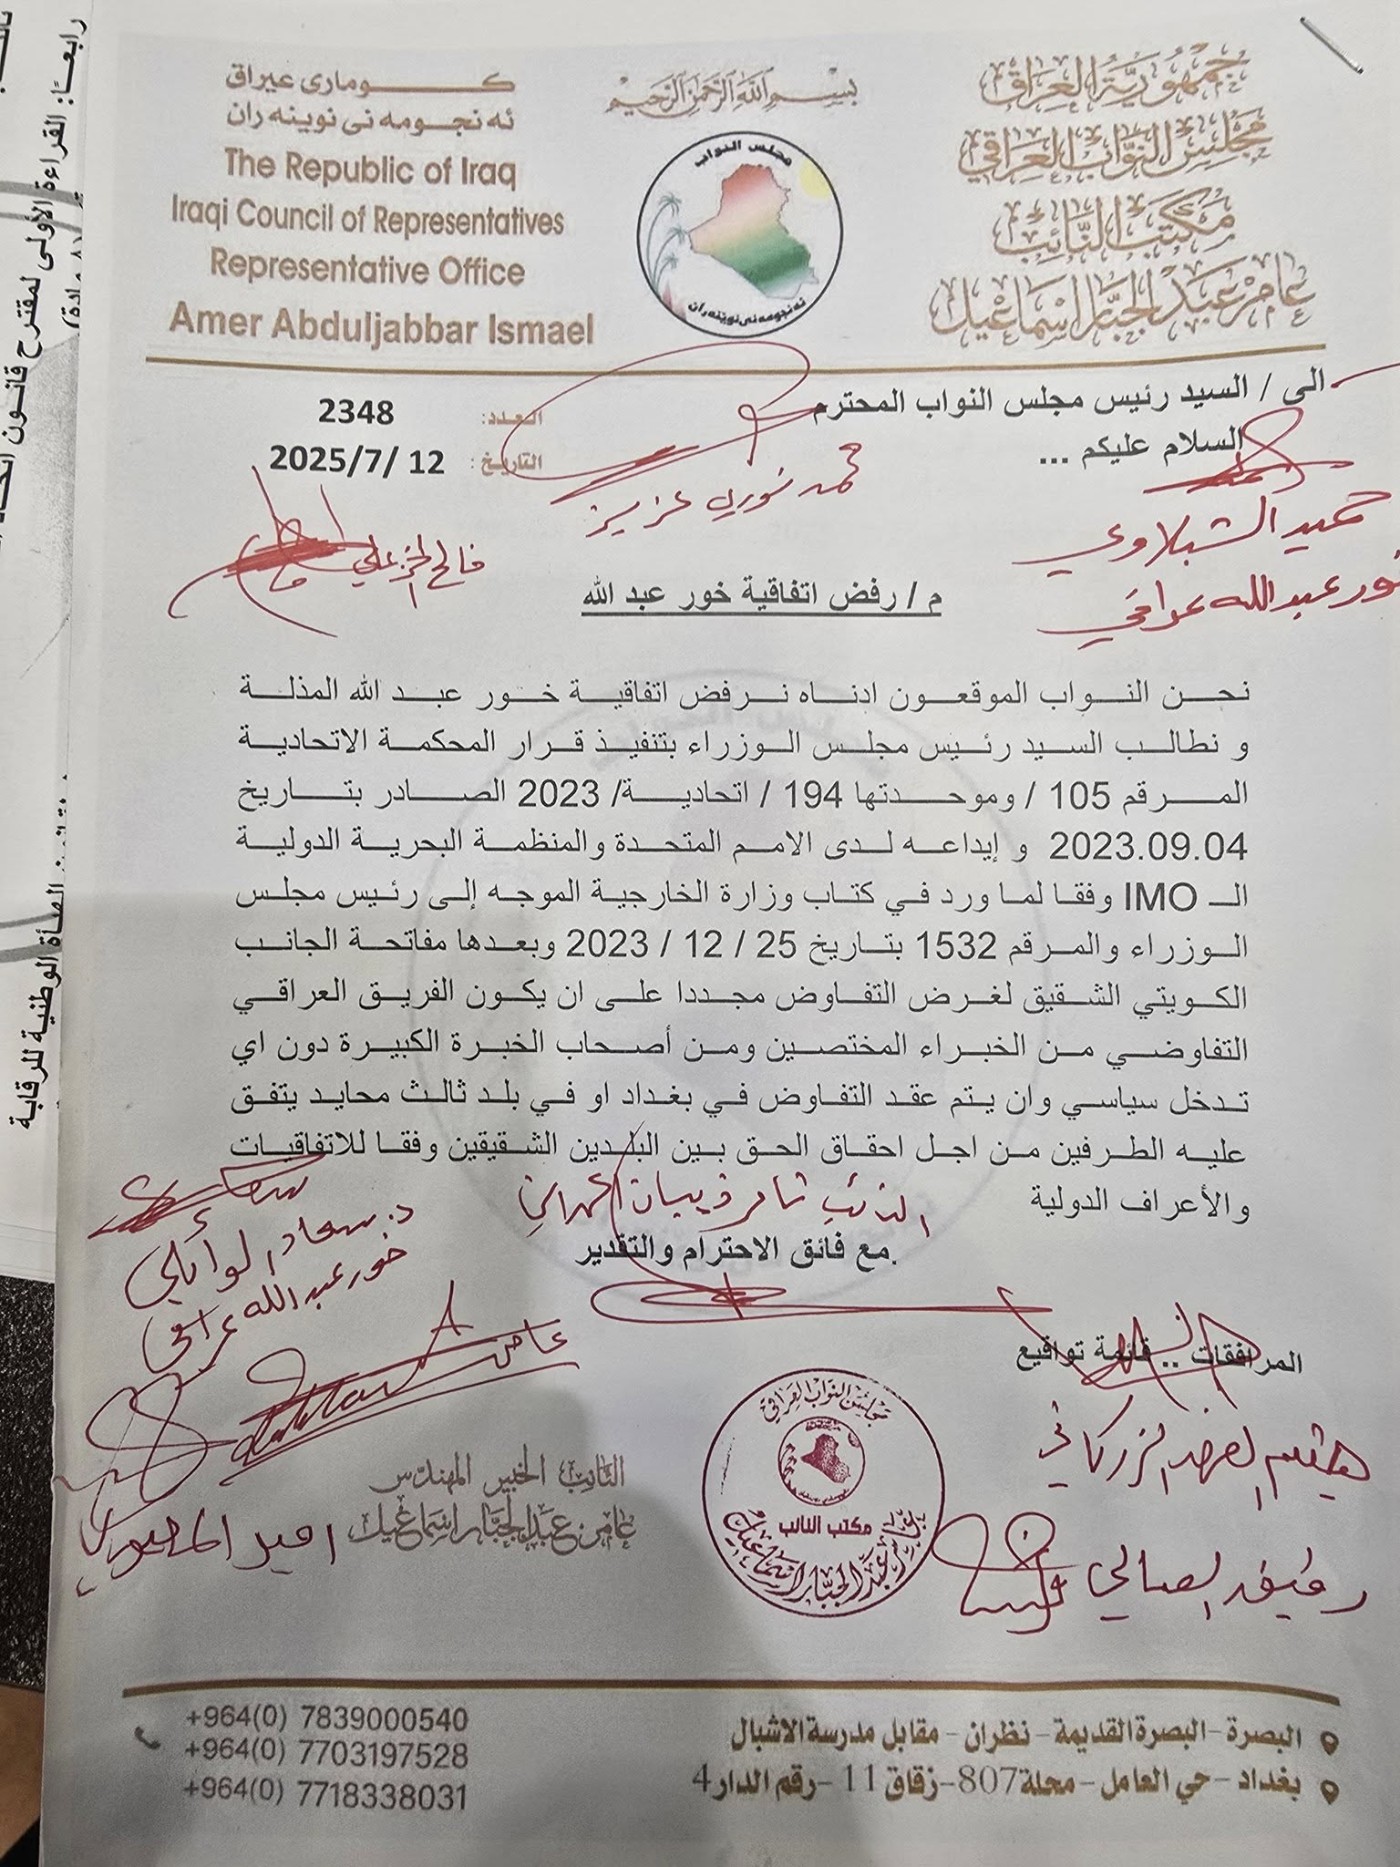 بسم الله الرحمن الرحيم
جمهورية العراق
مجلس النواب العراقي
مكتب النائب
عامر عبد الجبار اسماعيل
كـــوماری عیراق
ئه نجـومه نی نوینه ران
The Republic of Iraq
Iraqi Council of Representatives
Representative Office
Amer Abduljabbar Ismael
مجلس النواب
ئه نجومه نی نوینه ران
الى / السيد رئيس مجلس النواب المحترم
السلام عليكم ...
العدد: 2348
التاريخ: 12 /2025/7
محمد نوري عزيز
حميد الشبلاوي
خور عبدالله عراقي
فالح الخزعلي
م / رفض اتفاقية خور عبد الله
نحن النواب الموقعون ادناه نرفض اتفاقية خور عبد الله المذلة
و نطالب السيد رئيس مجلس الوزراء بتنفيذ قرار المحكمة الاتحادية
المرقم 105 / وموحدتها 194 / اتحادية/ 2023 الصادر بتاريخ
2023.09.04 و إيداعه لدى الامم المتحدة والمنظمة البحرية الدولية
الـ IMO وفقا لما ورد في كتاب وزارة الخارجية الموجه إلى رئيس مجلس
الوزراء والمرقم 1532 بتاريخ 25 / 12 / 2023 وبعدها مفاتحة الجانب
الكويتي الشقيق لغرض التفاوض مجددا على ان يكون الفريق العراقي
التفاوضي من الخبراء المختصين ومن أصحاب الخبرة الكبيرة دون اي
تدخل سياسي وان يتم عقد التفاوض في بغداد او في بلد ثالث محايد يتفق
عليه الطرفين من اجل احقاق الحق بين البلدين الشقيقين وفقا للاتفاقيات
والأعراف الدولية
النائب ثامر ذيبان الحمداني
مع فائق الاحترام والتقدير.
د. سعاد الوائلي
خور عبدالله عراقي
المرافقات .. قائمة تواقيع
عامر
هيثم الفهد الزركاني
النائب الخبير المهندس
عامر عبد الجبار اسماعيل
مجلس النواب العراقي
مكتب النائب
عامر عبد الجبار اسماعيل
امير المعموري
رفيق الصالحي
+964(0) 7839000540
+964(0) 7703197528
+964(0) 7718338031
البصرة - البصرة القديمة - نظران - مقابل مدرسة الاشبال
بغداد - حي العامل - محلة 807 - زقاق 11 - رقم الدار 4
رابعاً: القراءة الأولى لمقترح قانون
الوطنية للرقابة